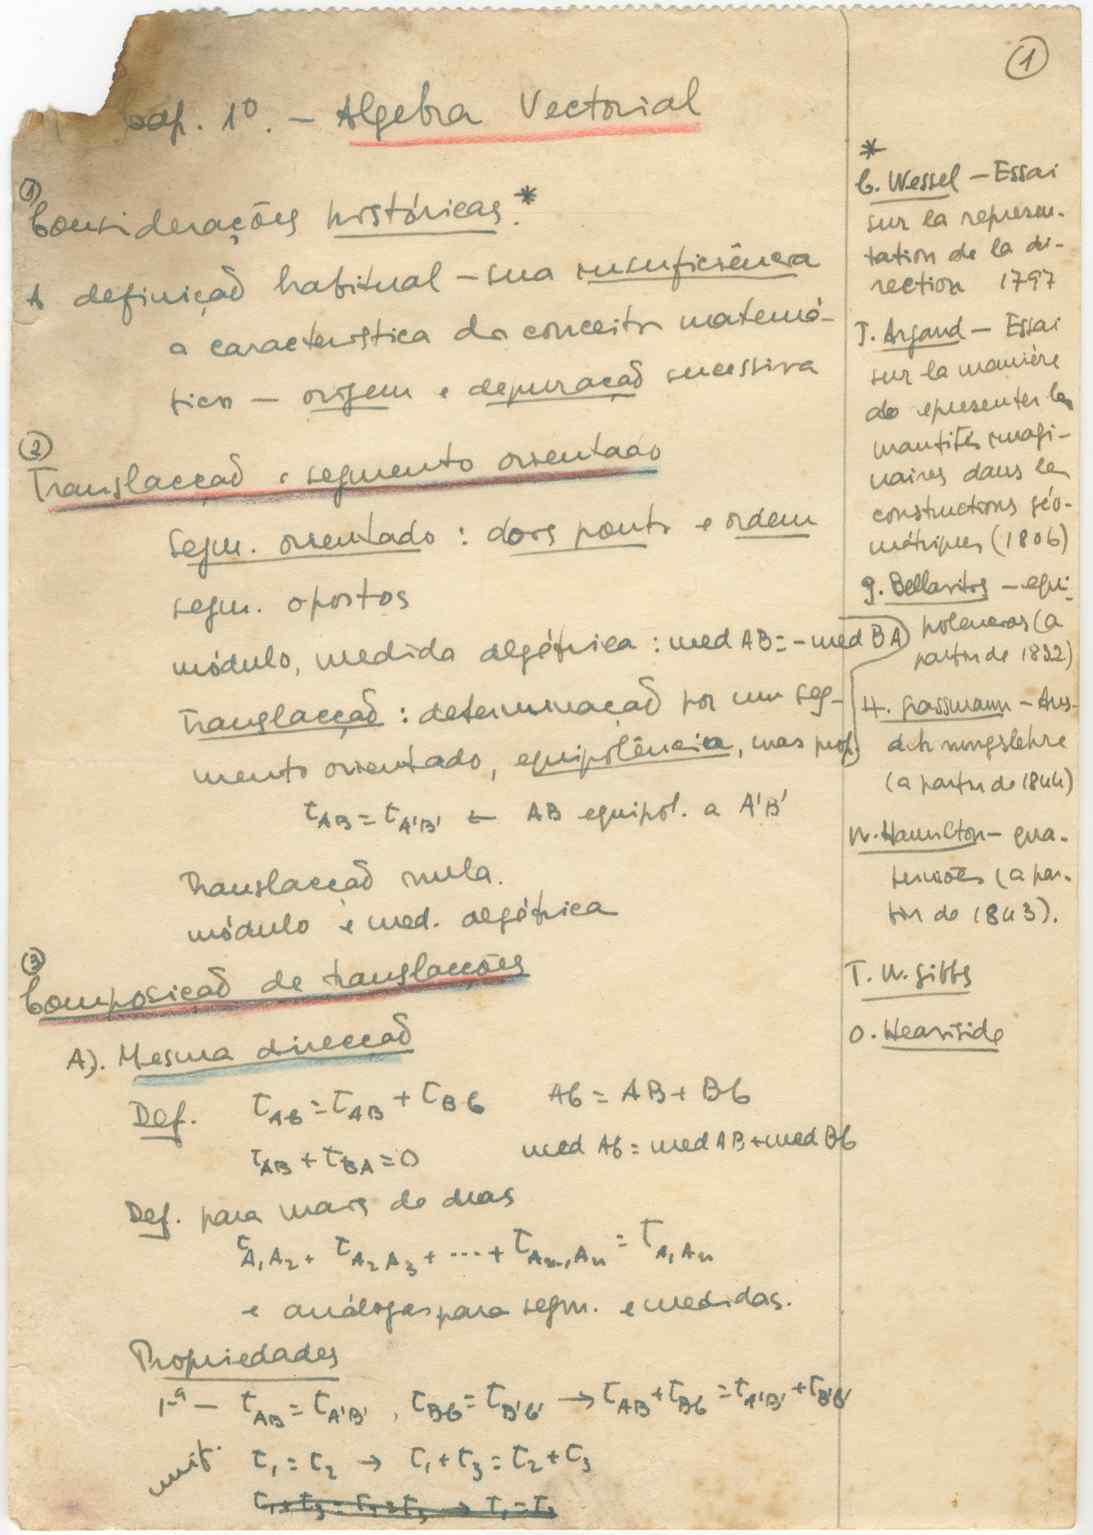 Cap. 1º. - Algebra Vectorial
①
① Considerações históricas.*
A definição habitual - sua insuficiência
a característica do conceito matemá-
tico - origem e depuração sucessiva
② Translacção e segmento orientado
segm. orientado : dois pontos e ordem
segm. opostos
módulo, medida algébrica : med AB = - med BA
Translacção : determinação por um seg-
mento orientado, equipolência, suas prop.
τAB = τA'B' ← AB equipol. a A'B'
Translacção nula.
módulo e med. algébrica
③ Composição de translacções
A). Mesma direcção
Def. τAC = τAB + τBC AC = AB + BC
τAB + τBA = 0 med AC = med AB + med BC
Def. para mais de duas
τA1A2 + τA2A3 + ... + τAn-1An = τA1An
e análogas para segm. e medidas.
Propriedades
1ª - τAB = τA'B' , τBC = τB'C' → τAB + τBC = τA'B' + τB'C'
unif. τ1 = τ2 → τ1 + τ3 = τ2 + τ3
τ1 + τ3 = τ2 + τ3 → τ1 = τ2
*
C. Wessel - Essai
sur la représen-
tation de la di-
rection 1797
J. Argand - Essai
sur la manière
de epresenter les
quantités imagi-
naires dans les
constructions géo-
métriques (1806)
G. Bellavitis - equi-
polencias (a
partir de 1832)
H. Grassmann - Aus-
dehnungslehre
(a partir de 1844)
W. Hamilton - qua-
terniões (a par-
tir de 1843).
J. W. Gibbs
O. Heaviside